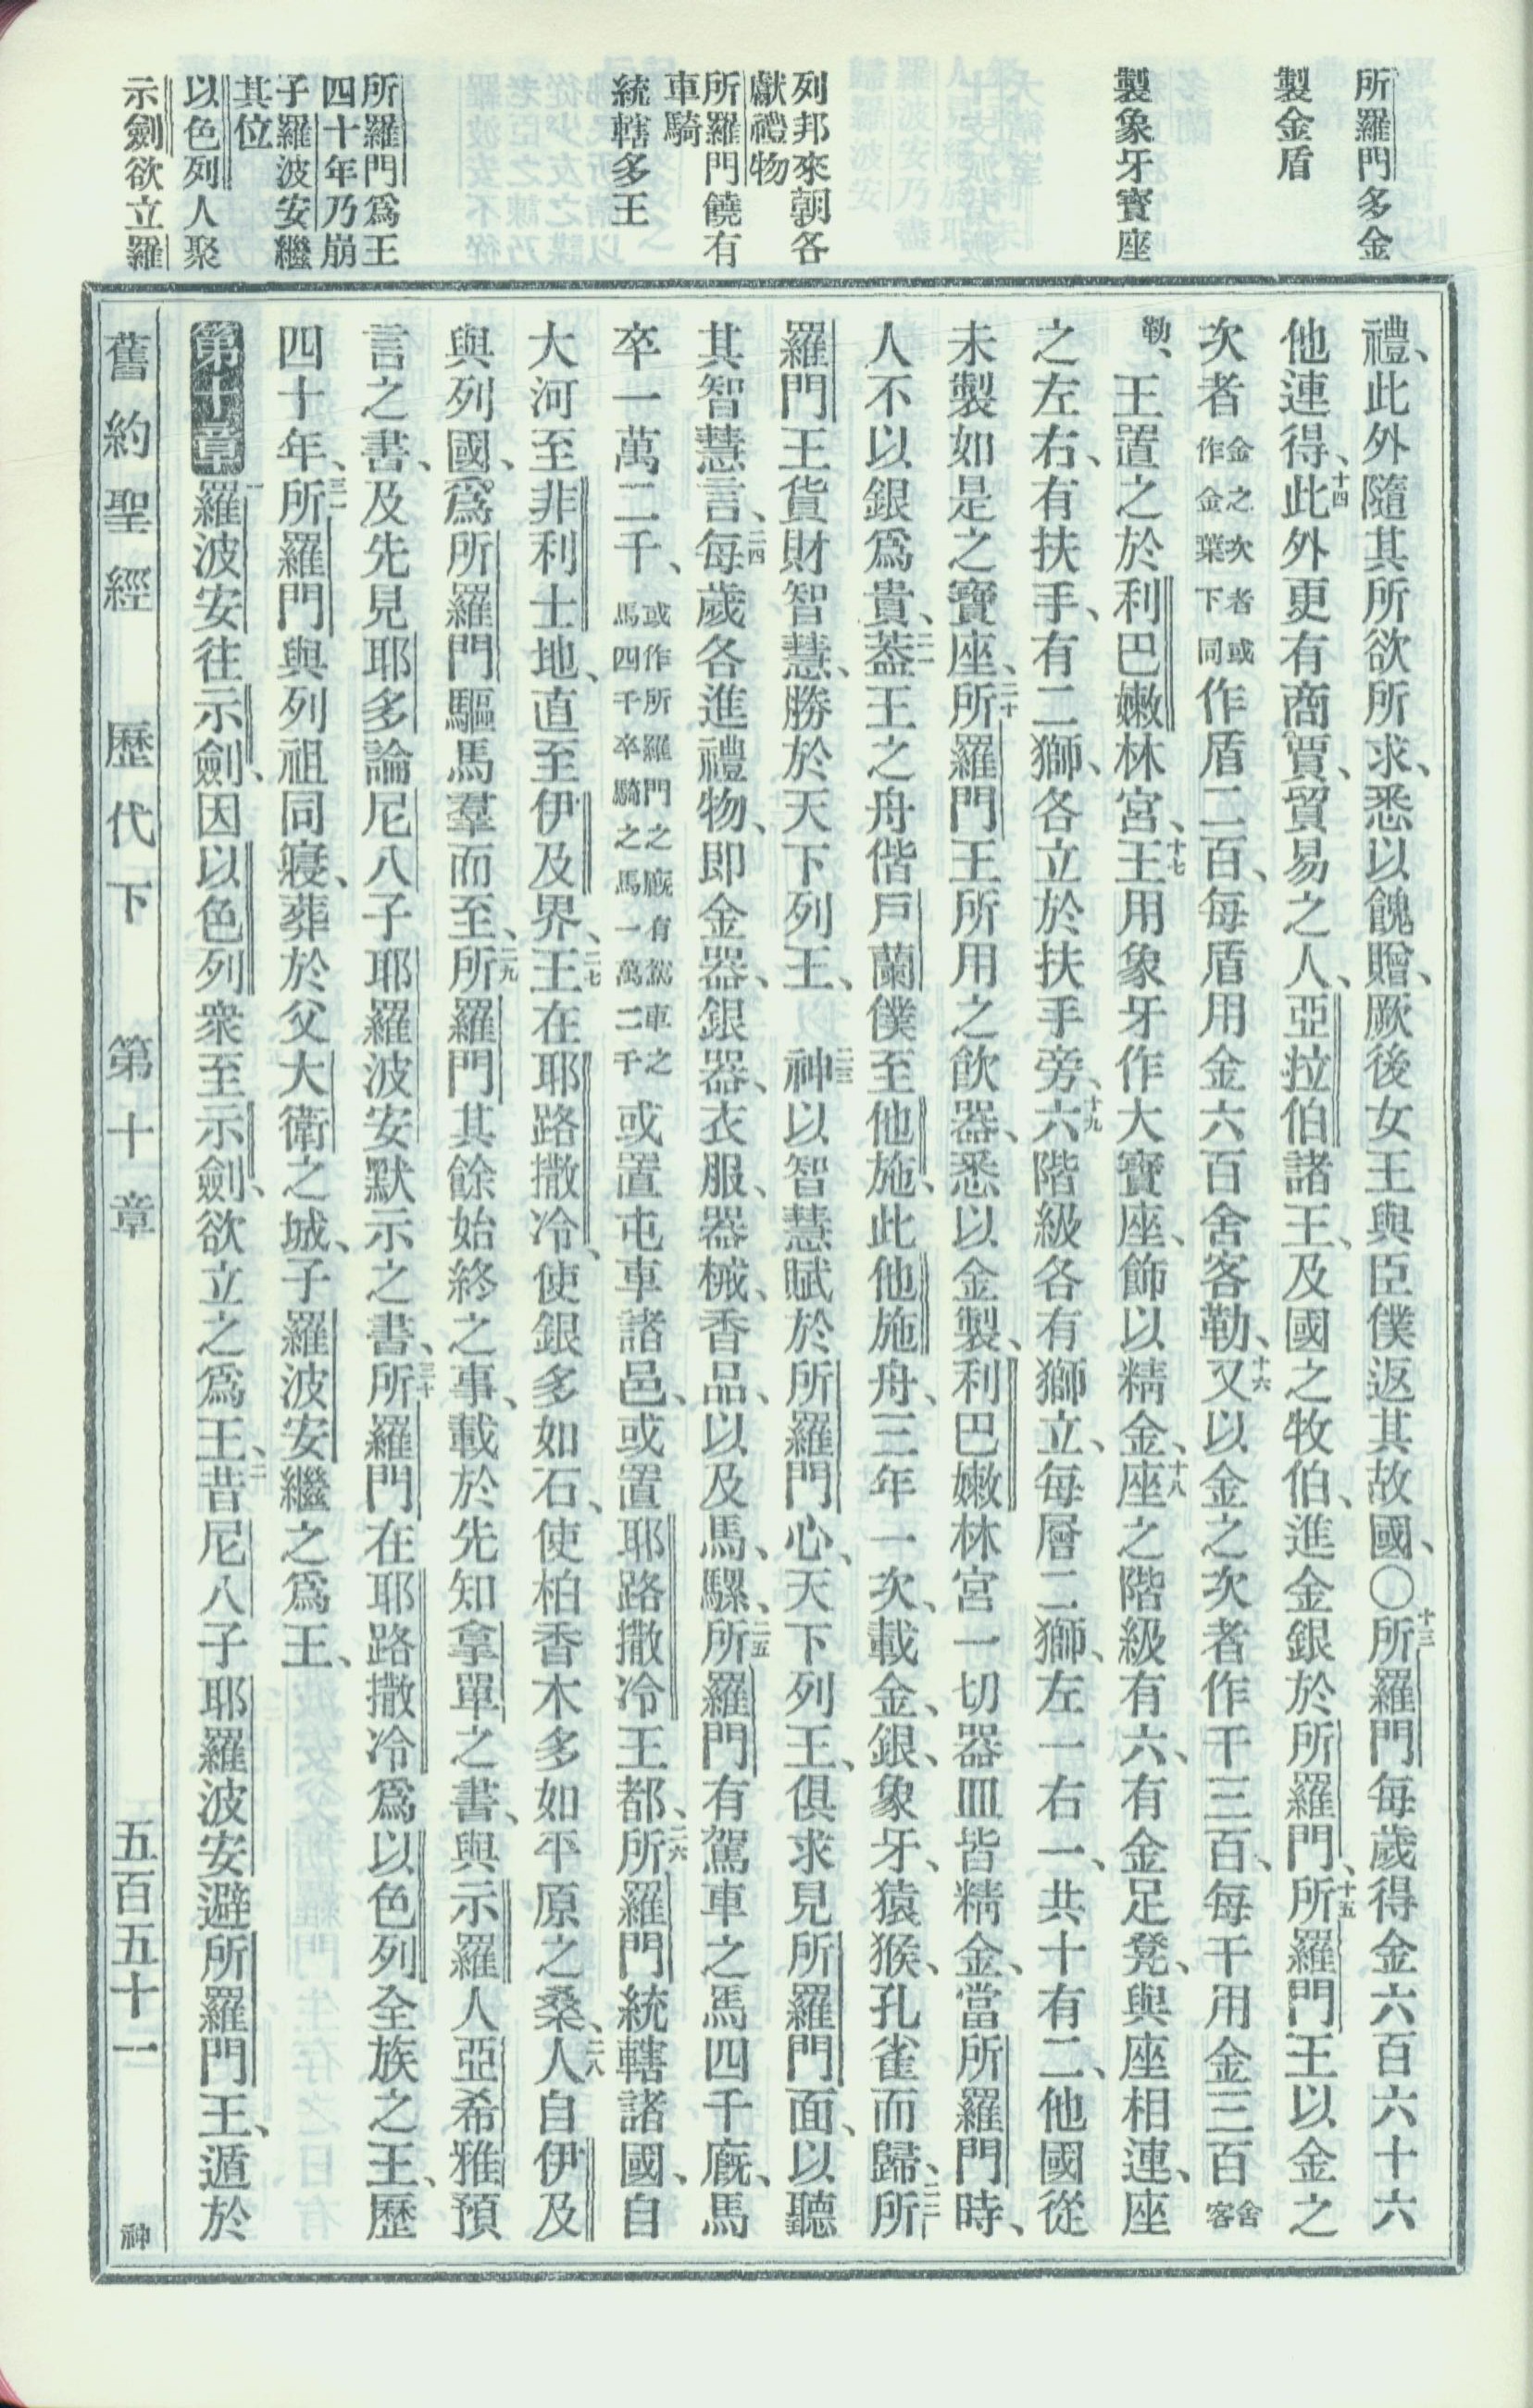 所羅門多金
製金盾
製象牙寶座
列邦來朝各
獻禮物
所羅門饒有
車騎
統轄多王
所羅門爲王
四十年乃崩
子羅波安繼
其位
以色列人聚
示劍欲立羅
禮、此外隨其所欲所求、悉以餽贈、厥後女王與臣僕返其故國、○十三所羅門每歲得金六百六十六
他連得、十四此外更有商賈、貿易之人、亞拉伯諸王、及國之牧伯、進金銀於所羅門、十五所羅門王以金之
次者金之次者或作金葉下同作盾二百、每盾用金六百舍客勒、十六又以金之次者作干三百、每干用金三百舍客
勒、王置之於利巴嫩林宮、十七王用象牙作大寶座、飾以精金、十八座之階級有六、有金足凳、與座相連、座
之左右、有扶手、有二獅、各立於扶手旁、十九六階級各有獅立、每層二獅、左一右一、共十有二、他國從
未製如是之寶座、二十所羅門王所用之飲器、悉以金製、利巴嫩林宮一切器皿皆精金、當所羅門時、
人不以銀爲貴、二一蓋王之舟偕戶蘭僕至他施、此他施舟、三年一次、載金、銀、象牙、猿猴、孔雀而歸、二二所
羅門王貨財智慧、勝於天下列王、二三神以智慧賦於所羅門心、天下列王、俱求見所羅門面、以聽
其智慧言、二四每歲各進禮物、即金器、銀器、衣服、器械、香品、以及馬、騾、二五所羅門有駕車之馬四千廐、馬
卒一萬二千、或作所羅門之廐有駕車之馬四千卒騎之馬一萬二千或置屯車諸邑、或置耶路撒冷王都、二六所羅門統轄諸國、自
大河至非利士地、直至伊及界、二七王在耶路撒冷、使銀多如石、使柏香木多如平原之桑、二八人自伊及
與列國、爲所羅門驅馬羣而至、二九所羅門其餘始終之事、載於先知拿單之書、與示羅人亞希雅預
言之書、及先見耶多論尼八子耶羅波安默示之書、三十所羅門在耶路撒冷爲以色列全族之王、歷
四十年、三一所羅門與列祖同寢、葬於父大衛之城、子羅波安繼之爲王、
第十章一羅波安往示劍、因以色列衆至示劍、欲立之爲王、二昔尼八子耶羅波安避所羅門王、遁於
舊約聖經 歷代下 第十章 五百五十一 神